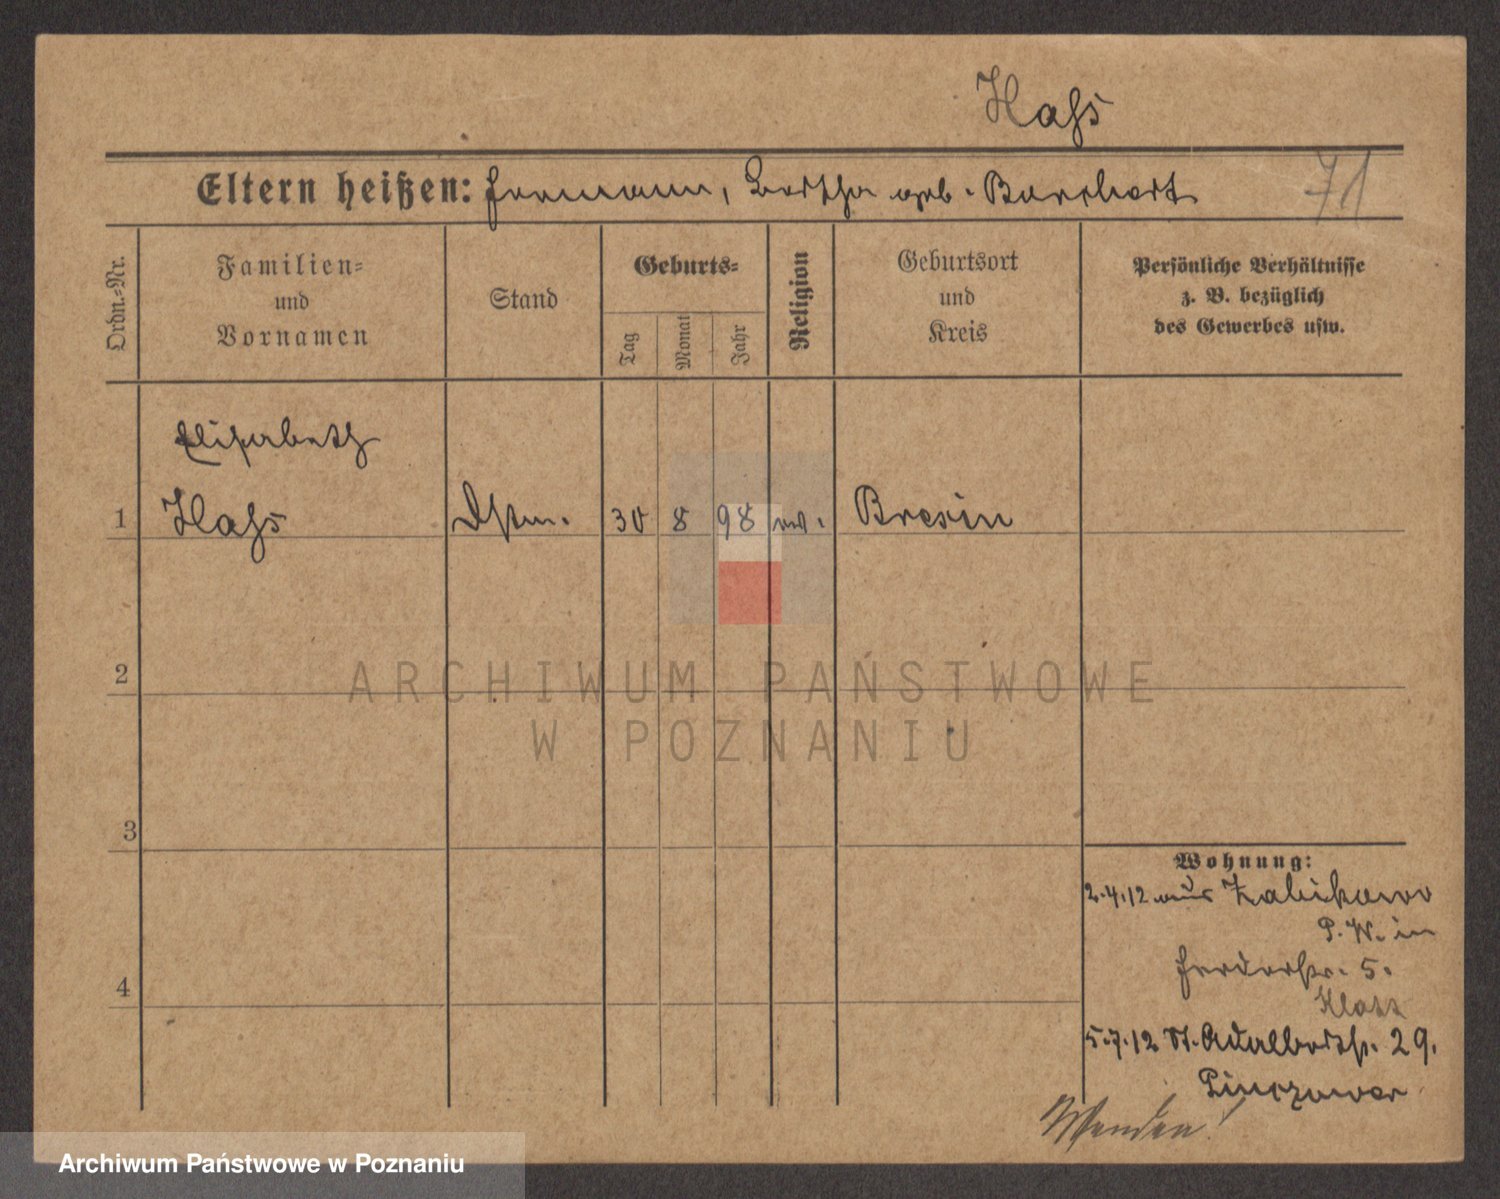 Haß
Eltern heißen: Hermann, Bertha geb. Burchert
71
Ordn.=Nr.
Familien=
und
Vornamen
Stand
Geburts=
Tag
Monat
Jahr
Religion
Geburtsort
und
Kreis
Persönliche Verhältnisse
z. B. bezüglich
des Gewerbes usw.
Elisabeth
1 Haß Dstm. 30 8 98 ev. Bresin
2
3
4
Wohnung:
2.4.12 aus Zabikowo
P. W. in
5.
5.7.12 St. Adalbertstr. 29.
Pinczower
Wenden!
ARCHIWUM PAŃSTWOWE
W POZNANIU
Archiwum Państwowe w Poznaniu